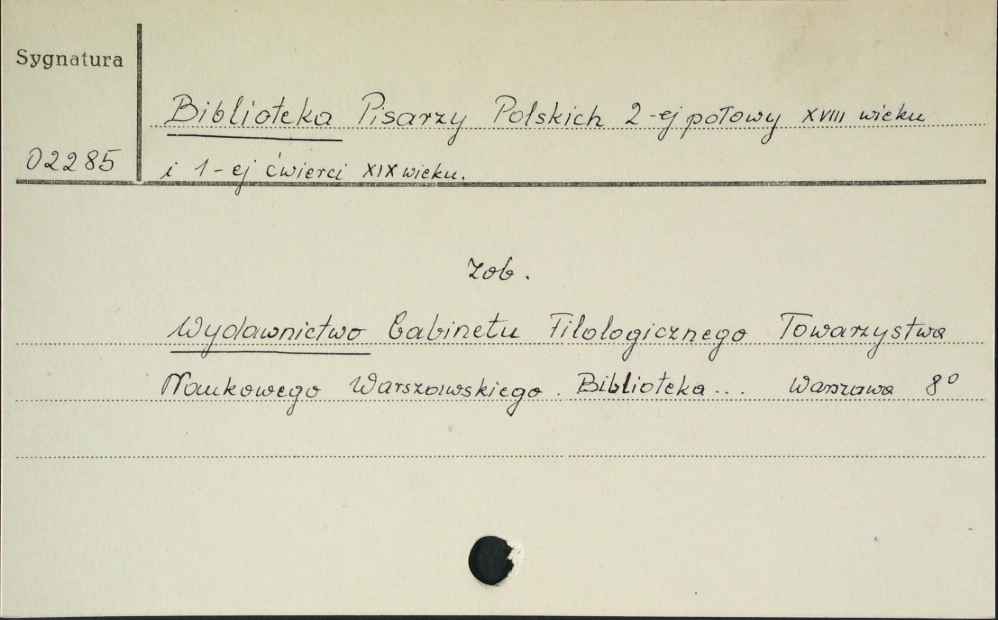 Sygnatura
Biblioteka Pisarzy Polskich 2-ej połowy XVIII wieku
02285
i 1-ej ćwierci XIX wieku.
Zob.
Wydawnictwo Gabinetu Filologicznego Towarzystwa
Naukowego Warszawskiego. Biblioteka... Warszawa 8°